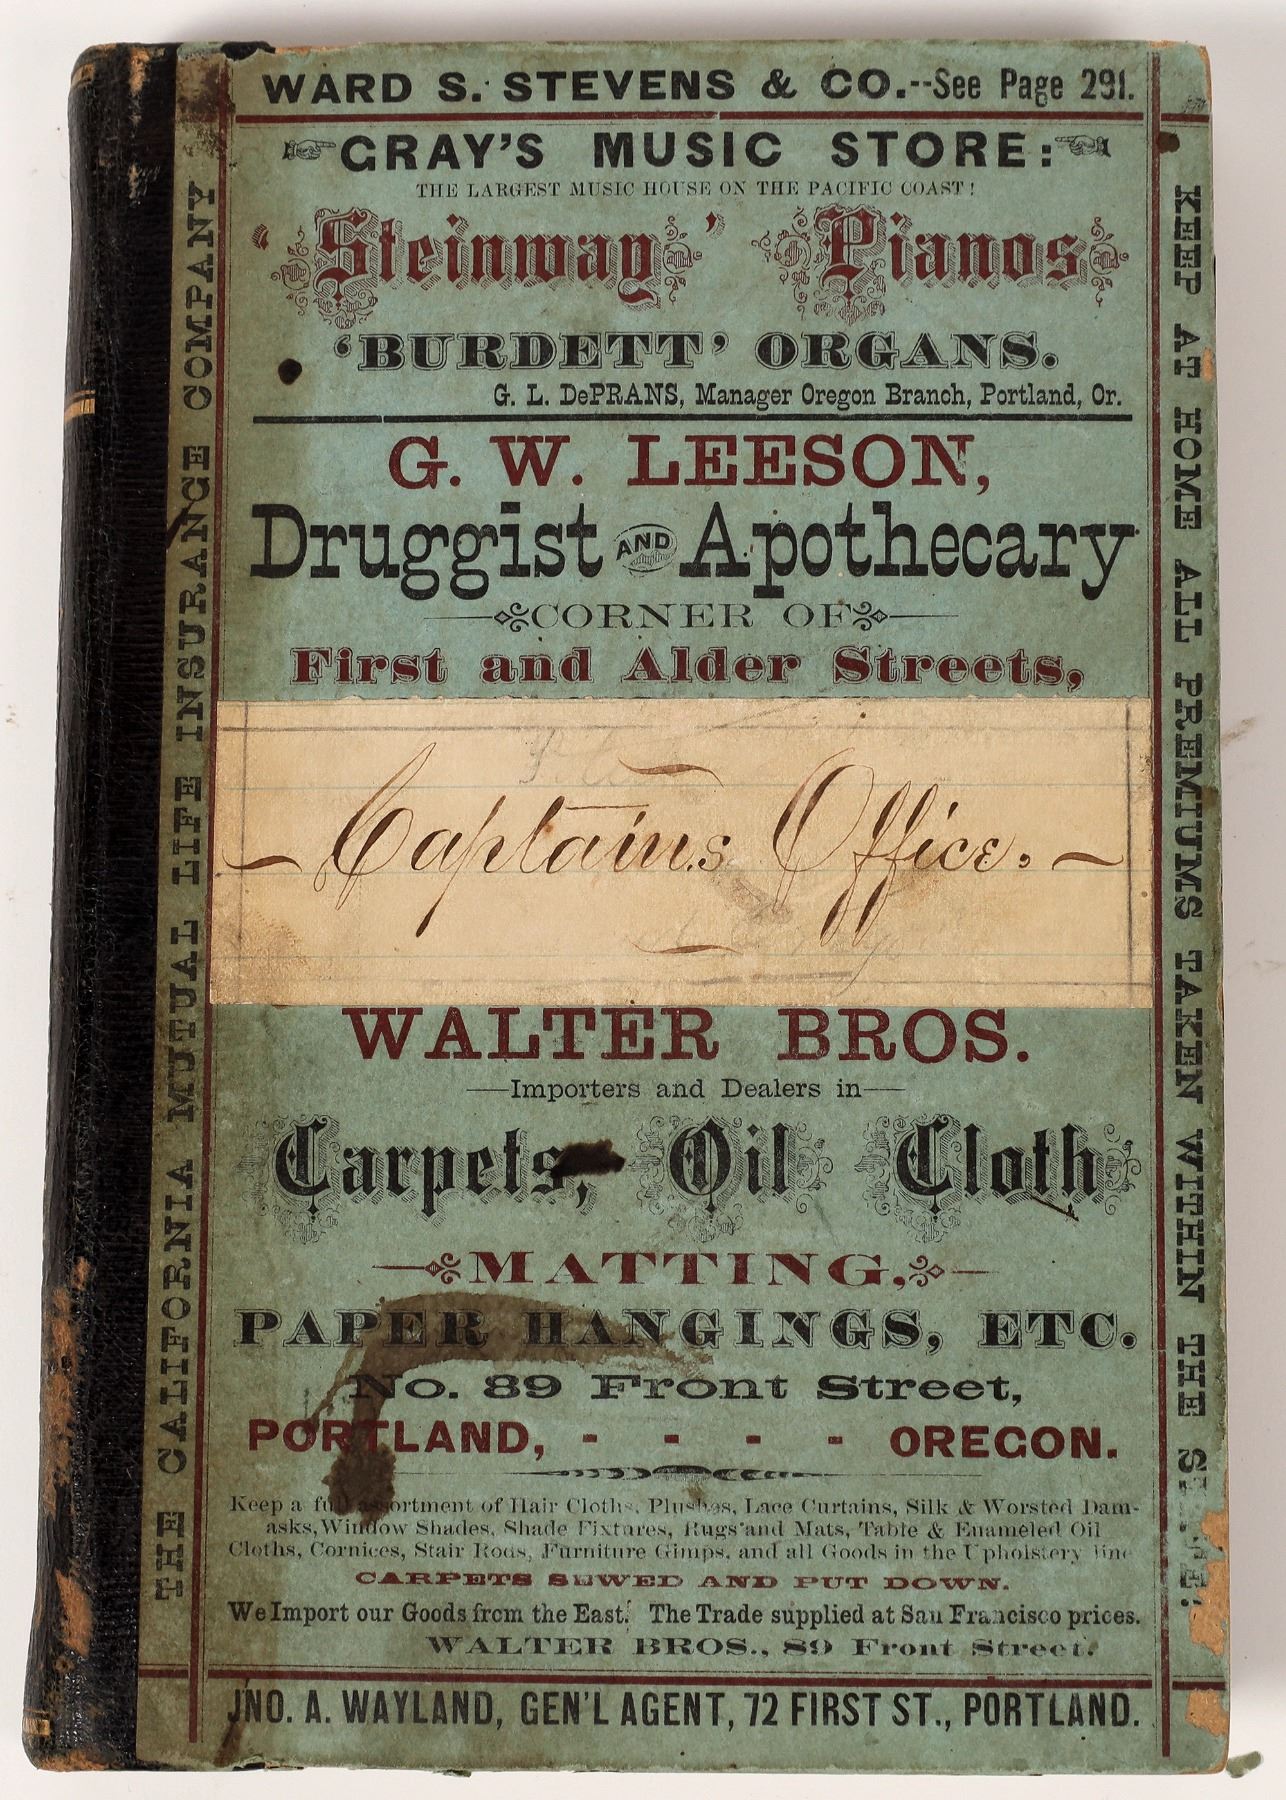 WARD S. STEVENS & CO.--See Page 291.
GRAY'S MUSIC STORE:
THE LARGEST MUSIC HOUSE ON THE PACIFIC COAST!
'Steinway' Pianos
'BURDETT' ORGANS.
G. L. DePRANS, Manager Oregon Branch, Portland, Or.
G. W. LEESON,
Druggist AND Apothecary
CORNER OF
First and Alder Streets,
Captains Office.
WALTER BROS.
Importers and Dealers in
Carpets, Oil Cloth
MATTING,
PAPER HANGINGS, ETC.
No. 89 Front Street,
PORTLAND, - - - - OREGON.
Keep a full assortment of Hair Cloths, Plushes, Lace Curtains, Silk & Worsted Dam-
asks, Window Shades, Shade Fixtures, Rugs and Mats, Table & Enameled Oil
Cloths, Cornices, Stair Rods, Furniture Gimps, and all Goods in the Upholstery line
CARPETS SEWED AND PUT DOWN.
We Import our Goods from the East. The Trade supplied at San Francisco prices.
WALTER BROS., 89 Front Street.
JNO. A. WAYLAND, GEN'L AGENT, 72 FIRST ST., PORTLAND.
THE CALIFORNIA MUTUAL LIFE INSURANCE COMPANY
KEEP AT HOME ALL PREMIUMS TAKEN WITHIN THE STATE: